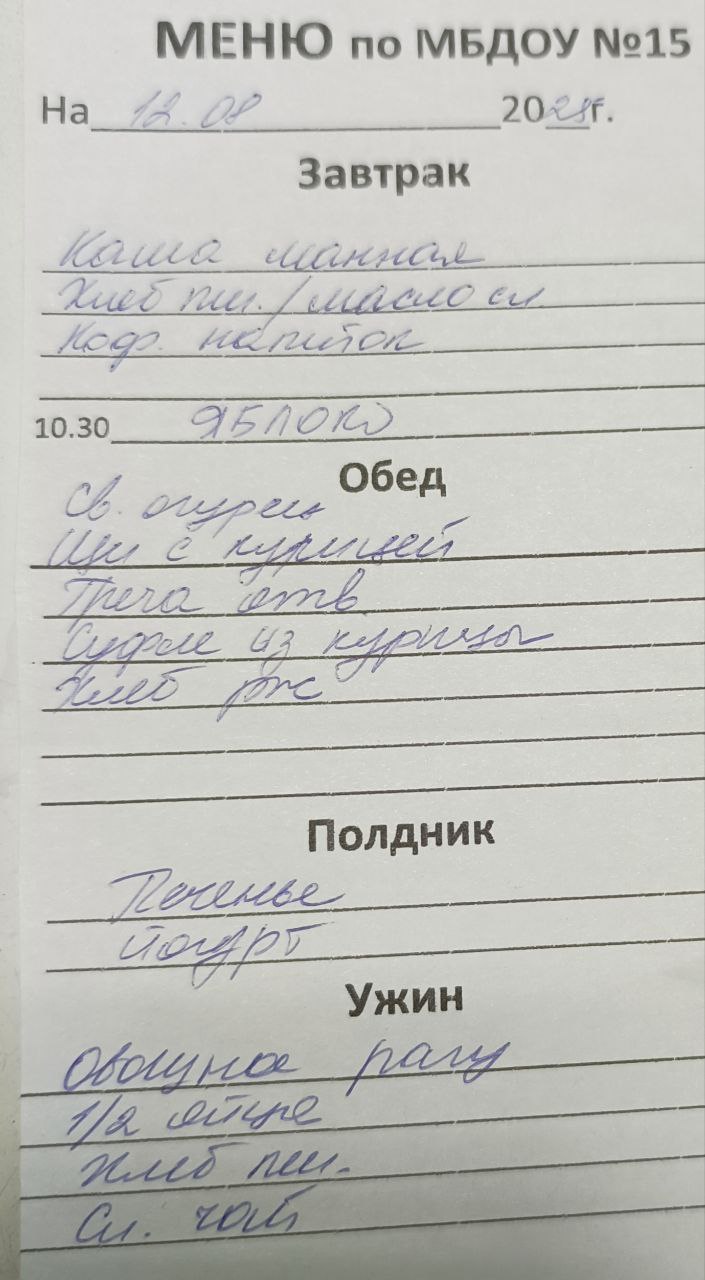 МЕНЮ по МБДОУ №15
На 12.08 2025г.
Завтрак
Каша манная
Хлеб пш./масло сл
Коф. напиток
10.30 ЯБЛОКО
Обед
Св. огурец
Щи с курицей
Греча отв
Суфле из курицы
Хлеб рж
Полдник
Печенье
Йогурт
Ужин
Овощное рагу
1/2 яйца
Хлеб пш.
Сл. чай